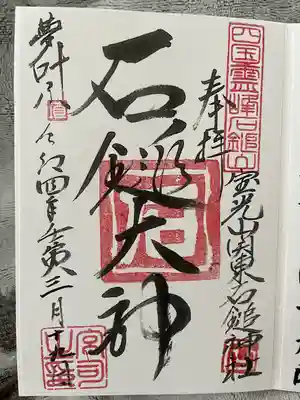 石鎚山
奉拝
宝光山関東石鎚神社
石鎚大神
夢叶
令和四年壬寅三月十九日
宮司